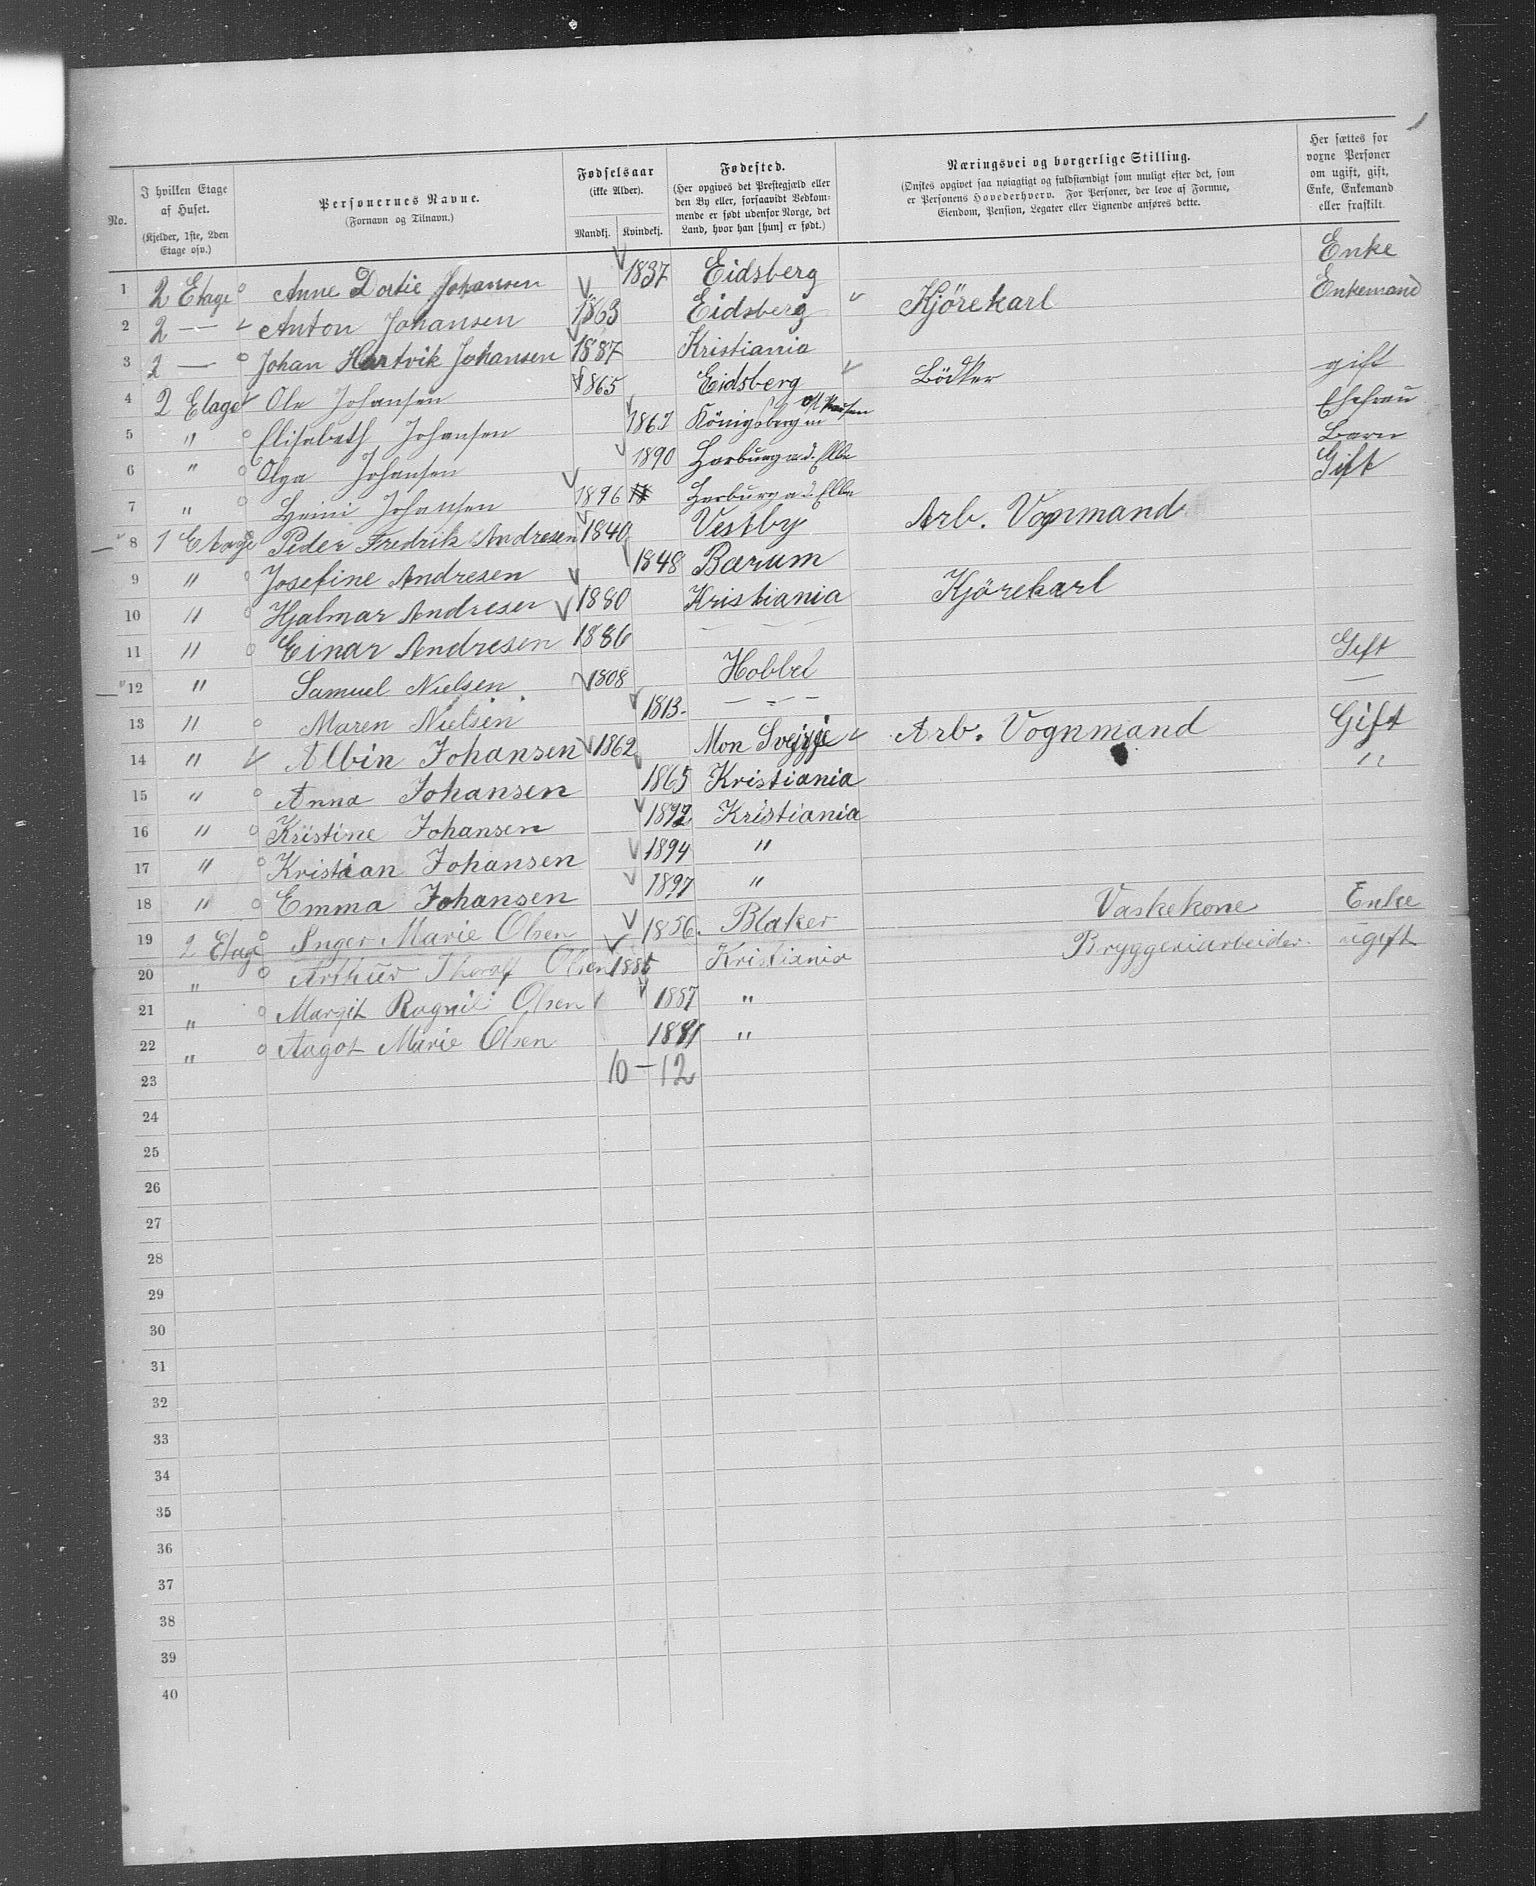 No. | I hvilken Etage af Huset. (Kjelder, 1ste, 2den Etage osv.) | Personernes Navne. (Fornavn og Tilnavn.) | Fødselsaar (ikke Alder). Mandkj. Kvindekj. | Fødested. (Her opgives det Prestegjæld eller den By eller, forsaavidt Vedkommende er født udenfor Norge, det Land, hvor han [hun] er født.) | Næringsvei og borgerlige Stilling. (Ønskes opgivet saa nøiagtigt og fuldstændigt som muligt efter det, som er Personens Hovederhverv. For Personer, der leve af Formue, Eiendom, Pension, Legater eller Lignende anføres dette. | Her sættes for voxne Personer om ugift, gift, Enke, Enkemand eller fraskilt.
1 2 Etage Anne Dortie Johansen 1837 Eidsberg Enke
2 2 — Anton Johansen 1863 Eidsberg Kjørekarl Enkemand
3 2 — Johan Hartvik Johansen 1887 Kristiania
4 2 Etage Ole Johansen 1865 Eidsberg Bödker gift
5 " Elisabeth Johansen 1862 Königsberg Ehefrau
6 " Olga Johansen 1890 Harburg a. d. Elbe Barn
7 " Heini Johansen 1896 Harburg a d Elbe Gift
8 1 Etage Peder Fredrik Andresen 1840 Vestby Arb. Vognmand
9 " Josefine Andresen 1848 Bærum
10 " Hjalmar Andresen 1880 Kristiania Kjörekarl
11 " Einar Andresen 1886 — — —
12 " Samuel Nielsen 1808 Hobbel Gift
13 " Maren Nielsen 1813 — — — —
14 " Albin Johansen 1862 Arb. Vognmand Gift
15 " Anna Johansen 1865 Kristiania "
16 " Kristine Johansen 1892 Kristiania
17 " Kristian Johansen 1894 "
18 " Emma Johansen 1897 "
19 2 Etag Inger Marie Olsen 1856. Blaker Vaskekone Enke
20 " Arthur Thoralf Olsen 1885 Kristiania Bryggeriarbeider. ugift
21 " Margit Ragnild Olsen 1887 "
22 " Aagot Marie Olsen 1891 "
23 10 — 12
24
25
26
27
28
29
30
31
32
33
34
35
36
37
38
39
40